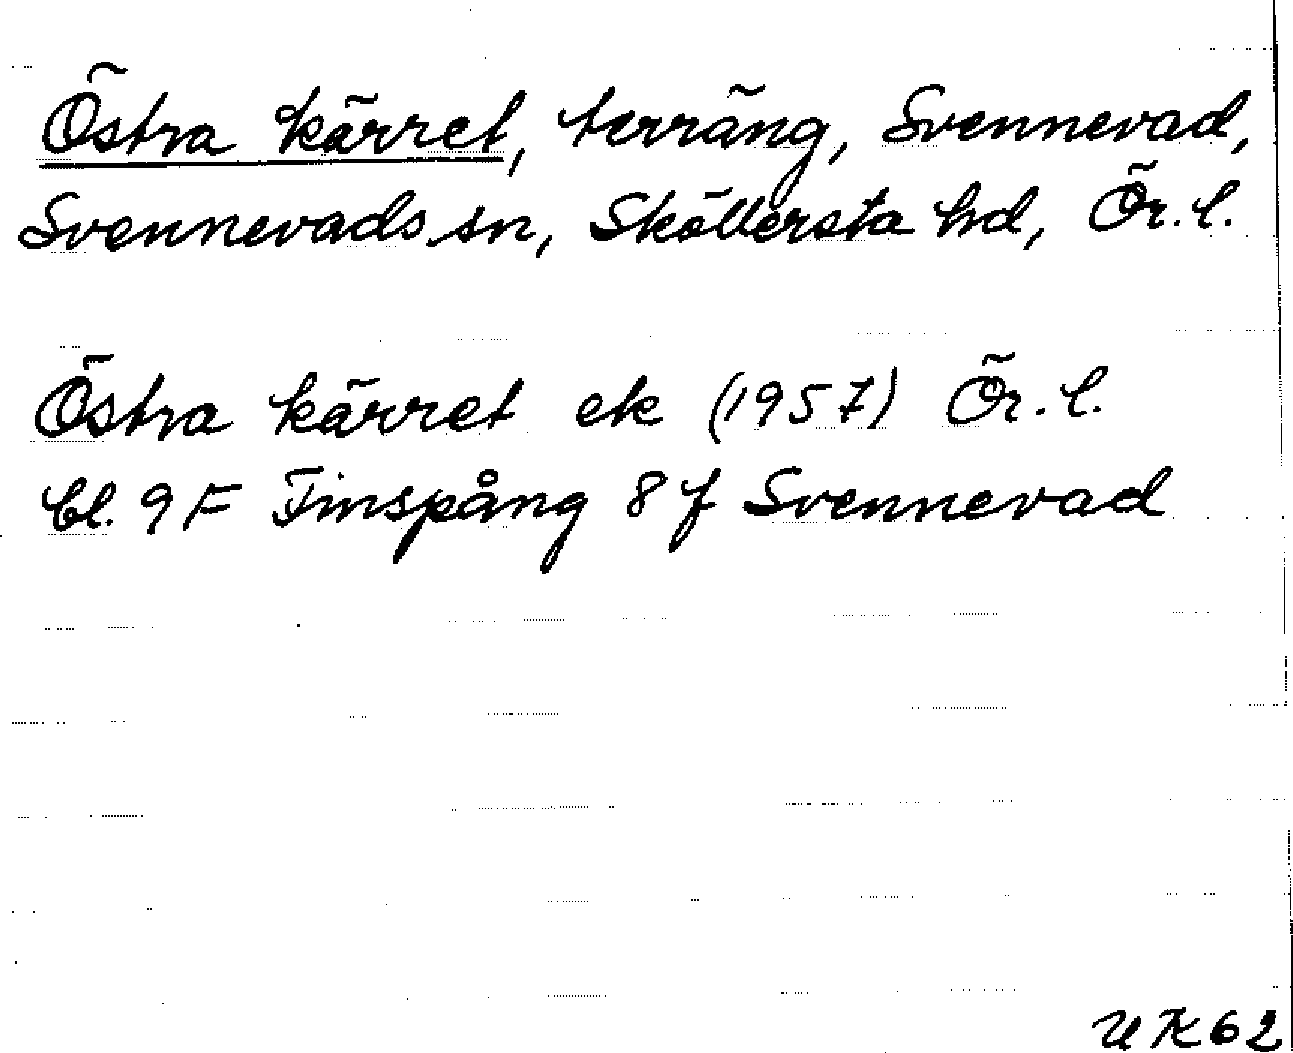 Östra kärret, terräng, Svennevad,
Svennevads sn, Sköllersta hd, Ör. l.
Östra kärret ek (1957) Ör. l.
bl. 9F Finspång 8f Svennevad
UK62